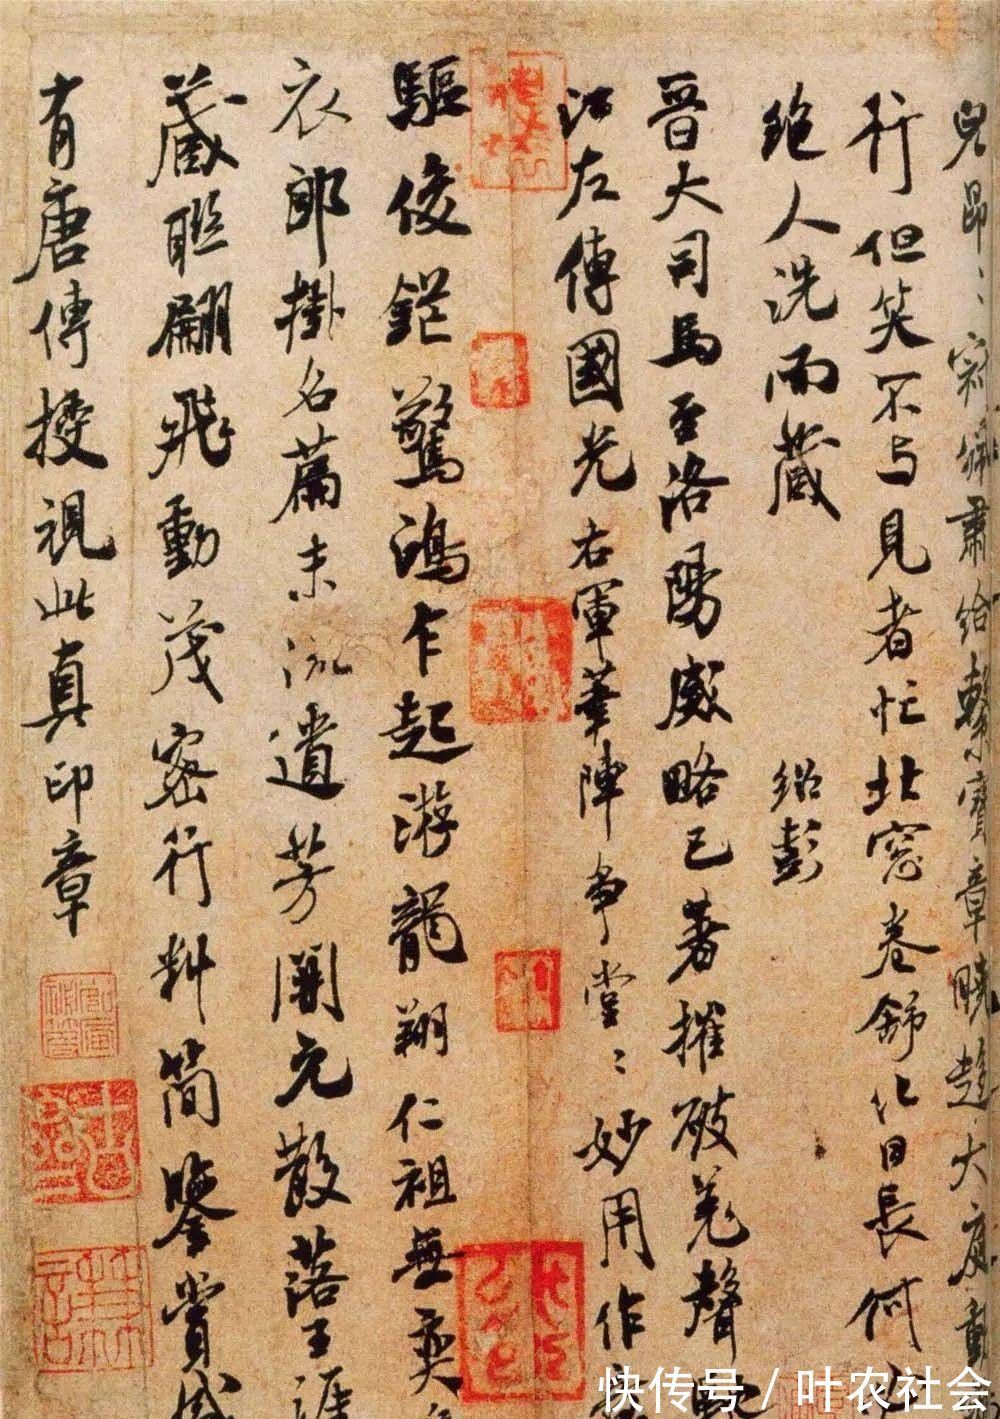 肅給繫寶章曉趨大庭
行但笑不与見者忙北窓卷舒化日長何
絶人洗而藏 紹彭
晉大司馬至洛陽威略已著摧破羌聲
江左傳國光右軍筆陣爭堂〻妙用作
驅俊鋩驚鴻乍起游龍翔仁祖無奕
衣郎掛名篇末流遺芳開元散落王涯
藏聯翩飛動茂密行料簡鑒賞
有唐傳授視此真印章
快传号 / 叶农社会